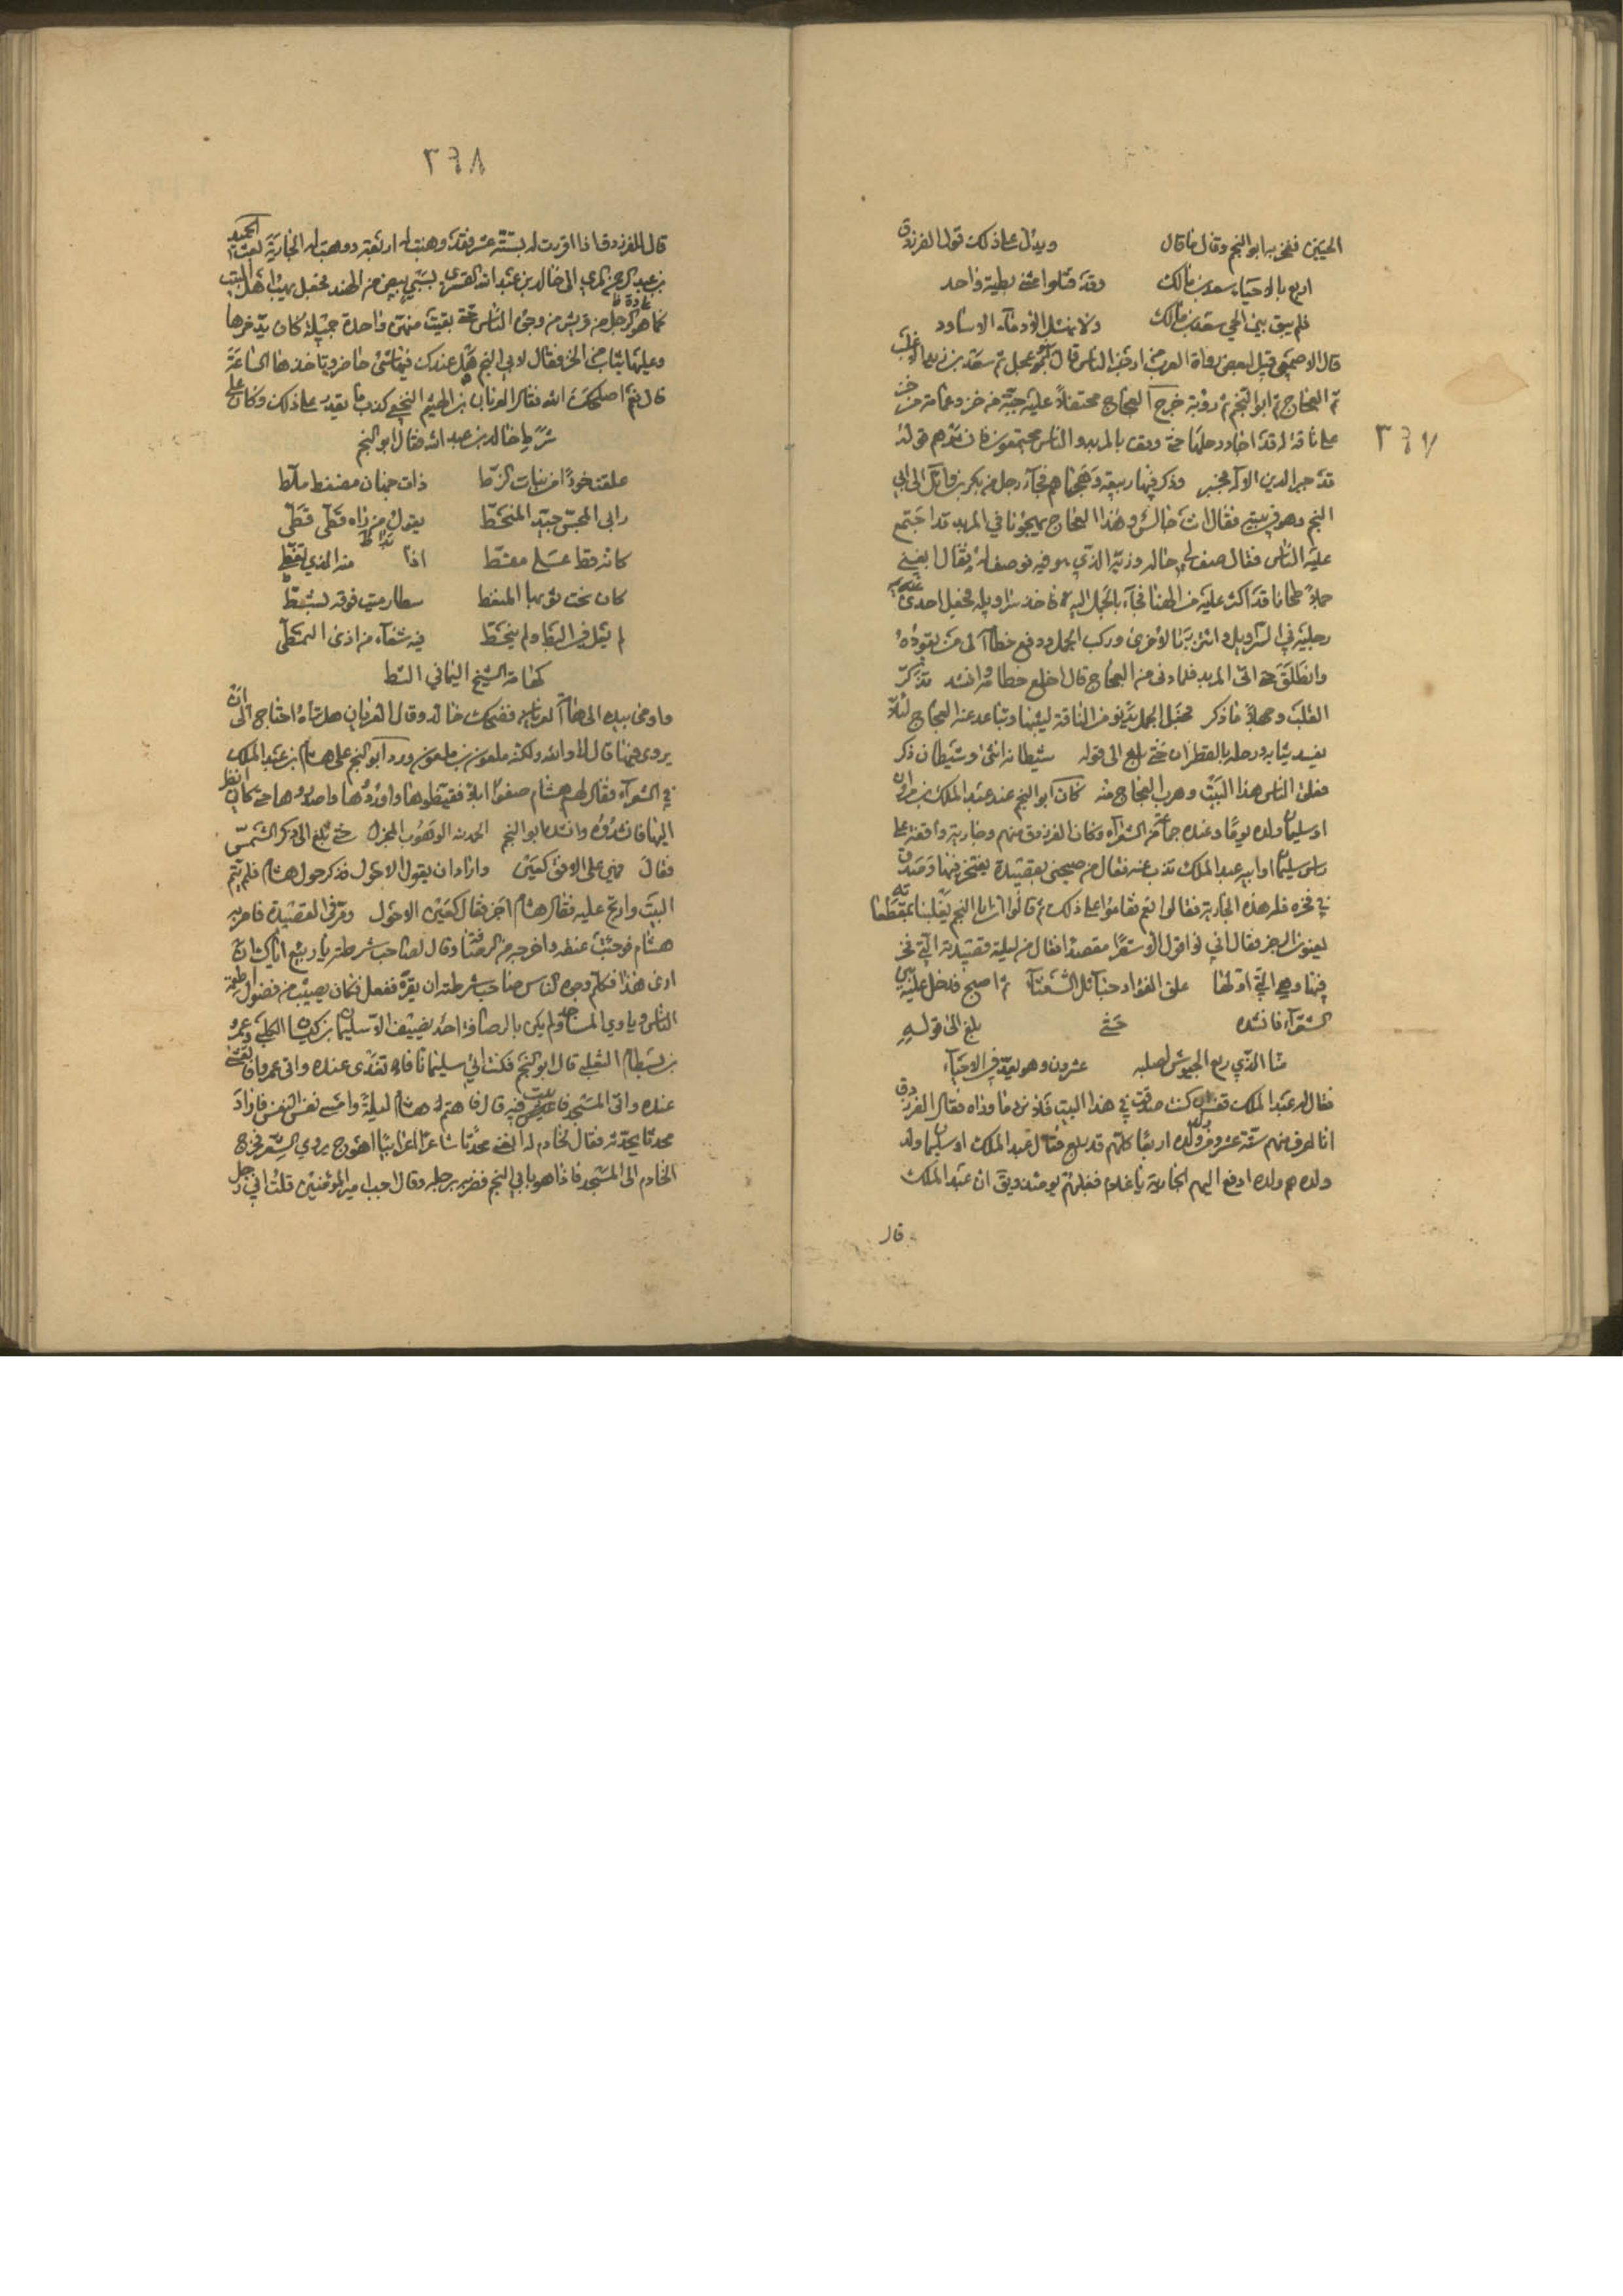 ٣٦٧
الحيين ففخر به ابو النجم وقال ما قال ويدل على ذلك قول الفرزدق
اربع بالاحياء سعد بن مالك وقد قتلوا مثنى بظنة واحد
فلم يبق بين الحي سعد بن مالك ولا نهشل الا دماء الاساود
قال الاصمعي قيل لبعض رواة العرب من ارجز الناس قال بنو عجل ثم سعد بن زيد الاغلب
ثم العجاج ثم ابو النجم ثم رؤبة خرج العجاج محتفلاً عليه جبة من خز وعمامة من خز
على ناقة له قد اجاد رحلها حتى وقف بالمربد والناس مجتمعون فانشدهم قوله
قد جبر الدين الاله فجبر وذكر فيها ربيعة وهجاهم فجآء رجل من بكر بن وائل الى ابي
النجم وهو في بيته فقال انت جالس وهذا العجاج يهجونا في المربد قد اجتمع
عليه الناس فقال صف لي حاله وزيه الذي هو فيه فوصف له فقال ابغني
جملاً طحانا قد اكثر عليه من الهنا فجآء بالجمل اليه فاخذ سراويله فجعل احدى
رجليه في السراويل واتزر بالاخرى وركب الجمل ودفع خطامه الى من يقوده
وانطلق حتى اتى المربد فلما دنى من العجاج قال اخلع خطامه وانشد تذكر
القلب وجهلاً ما ذكر فجعل الجمل يدنو من الناقة ليشمها ويتباعد عنه العجاج لئلا
يفسد ثيابه ورحله بالقطران حتى بلغ الى قوله شيطانه انثى وشيطاني ذكر
فعلق الناس هذا البيت وهرب العجاج منه كان ابو النجم عند عبد الملك بن مروان
او سليمان ولده يوماً وعنده جماعة من الشعرآء وكان الفرزدق منهم وجارية واقفة على
راس سليمان او ابيه عبد الملك تذب عنه فقال من صبحني بقصيدة يفتخر فيها وصدق
في فخره فله هذه الجارية فقالوا نعم فقاموا على ذلك ثم قالوا ان ابا النجم يغلبنا بمقطعاته
يعنون الرجز فقال اني لا اقول الا شعرا مقصدا فقال من ليلته قصيدته التي فخر
فيها وهي التي اولها علق الفؤاد حبائل الشعثآء ثم اصبح فدخل عليه
الشعرآء فانشده حتى بلغ الى قوله
منا الذي ربع الجيوش لصلبه عشرون وهو يعد في الاحيآء
فقال له عبد الملك قف ان كنت صادقت في هذا البيت فلا نريد ما وراه فقال الفرزدق
انا اعرف منهم ستة عشر ومن ولد ولده اربعا كلهم قد ربع فقال عبد الملك او سليمان ولد
ولده هم ولده ادفع اليهم الجارية يا غلام فغلبهم يومئذ ويق ان عبد الملك
قال
٣٦٨
قال للفرزدق اذا اقررت له بستة عشر فقد وهبت له اربعة ووهب له الجارية بعث الجنيد
بن عبد الرحمن المري الى خالد بن عبد الله القسري بسبي بيض من الهند فجعل يهب اهل البيت
كما هو للرجل من قريش من وجوه الناس حتى بقيت منهن واحدة جميلة كان يدخرها
وعليها ثياب من الخز فقال لابي النجم هل عندك فيها شئ حاضر وتاخذها الساعة
قال نعم اصلحك الله فقال العريان بن الهيثم النخعي كذب ما يقدر على ذلك وكان على
شرطة خالد بن عبد الله فقال ابو النجم
علقت خودًا من بنات الزط ذات جهاز مضغط ملط
رابي المجس جيد المحط يقول من رآه قطي قطي
كانه قط على مقط اذا بدا منه الذي تغطي
كان تحت ثوبها المنعط شطا رميت فوقه بشط
لم ينزل في البطا ولم ينحط فيه شفآء من اذى التمطي
كهامة الشيخ اليماني الثط
واومى بيده الى هامة العريان فضحك خالد وقال للعريان هل تراه احتاج الى ان
يروي فيها قال لا والله ولكنه ملعون بن ملعون ورد ابو النجم على هشام بن عبد الملك
في الشعرآء فقال لهم هشام صفوا ابلا فقيظوها واوردوها واصدروها حتى كاني انظر
اليها فانشدوه وانشده ابو النجم الحمد لله الوهوب المجزل حتى بلغ الى ذكر الشمس
فقال فهي على الافق كعين وارادان يقول الاحول فذكر حول هشام فلم يتم
البيت وارتج عليه فقال هشام اجز فقال كعين الاحول ومر في القصيدة فامر به
هشام فوجئت عنقه واخرج من الرصافة وقال لصاحب شرطته يا ربيع اياك وان
ارى هذا فكلم وجوه الناس صاحب شرطته ان يقره ففعل فكان يصيب من فضول اطعمة
الناس وياوي المساجد ولم يكن بالرصافة احد يضيف الا سليمان بن كيسان الكلبي وعمرو
بن بسطام التغلبي قال ابو النجم فكنت اتي سليمان فاتغدى عنده واتى عمرو فاتعشى
عنده واتى المسجد فابيت فيه قال فاهتم هشام ليلة وامسى لقس النفس فاراد
محدثا يحدثه فقال لخادم له ابغني محدثا شاعرا اعرابيا اهوج يروي الشعر فخرج
الخادم الى المسجد فاذا هو بابي النجم فضربه برجله وقال اجب امير المؤمنين قلت اني رجل